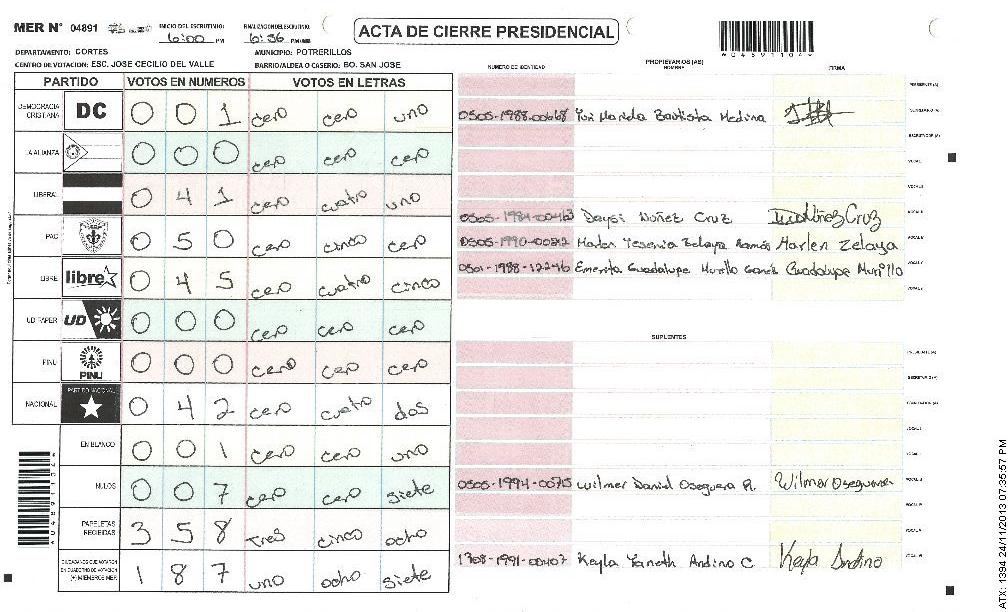 MER N° 04891 INICIO DEL ESCRUTINIO: 6:00 PM FINALIZACION DEL ESCRUTINIO: 6:36 PM
ACTA DE CIERRE PRESIDENCIAL
04891104
DEPARTAMENTO: CORTES MUNICIPIO: POTRERILLOS
CENTRO DE VOTACION: ESC. JOSE CECILIO DEL VALLE BARRIO/ALDEA O CASERIO: BO. SAN JOSE
PARTIDO VOTOS EN NUMEROS VOTOS EN LETRAS
DEMOCRACIA CRISTIANA DC 0 0 1 cero cero uno
LA ALIANZA 0 0 0 cero cero cero
LIBERAL 0 4 1 cero cuatro uno
PAC 0 5 0 cero cinco cero
LIBRE libre 0 4 5 cero cuatro cinco
UD FAPER UD 0 0 0 cero cero cero
PINU PINU 0 0 0 cero cero cero
NACIONAL PARTIDO NACIONAL 0 4 2 cero cuatro dos
EN BLANCO 0 0 1 cero cero uno
NULOS 0 0 7 cero cero siete
PAPELETAS RECIBIDAS 3 5 8 tres cinco ocho
CIUDADANOS QUE VOTARON EN CUADERNO DE VOTACION (+) MIEMBROS MER 1 8 7 uno ocho siete
04891104
NUMERO DE IDENTIDAD PROPIETARIOS (AS) NOMBRE FIRMA
PRESIDENTE (A)
0505-1988-00668 Bautista Medina
VOCAL I
VOCAL II
Daysi Nuñez Cruz
Marlen Yesenia Zelaya Ramos Marlen Zelaya
0501-1988-12246 Emerita Guadalupe Murillo Guadalupe Murillo
SUPLENTES
PRESIDENTE (A)
SECRETARIO (A)
VOCAL I
0505-1994-00715 Wilmer Daniel Oseguera R. Wilmer Oseguera
1708-1991-00407 Keyla Yaneth Andino C. Keyla Andino
ATX: 1394 24/11/2013 07:35:57 PM